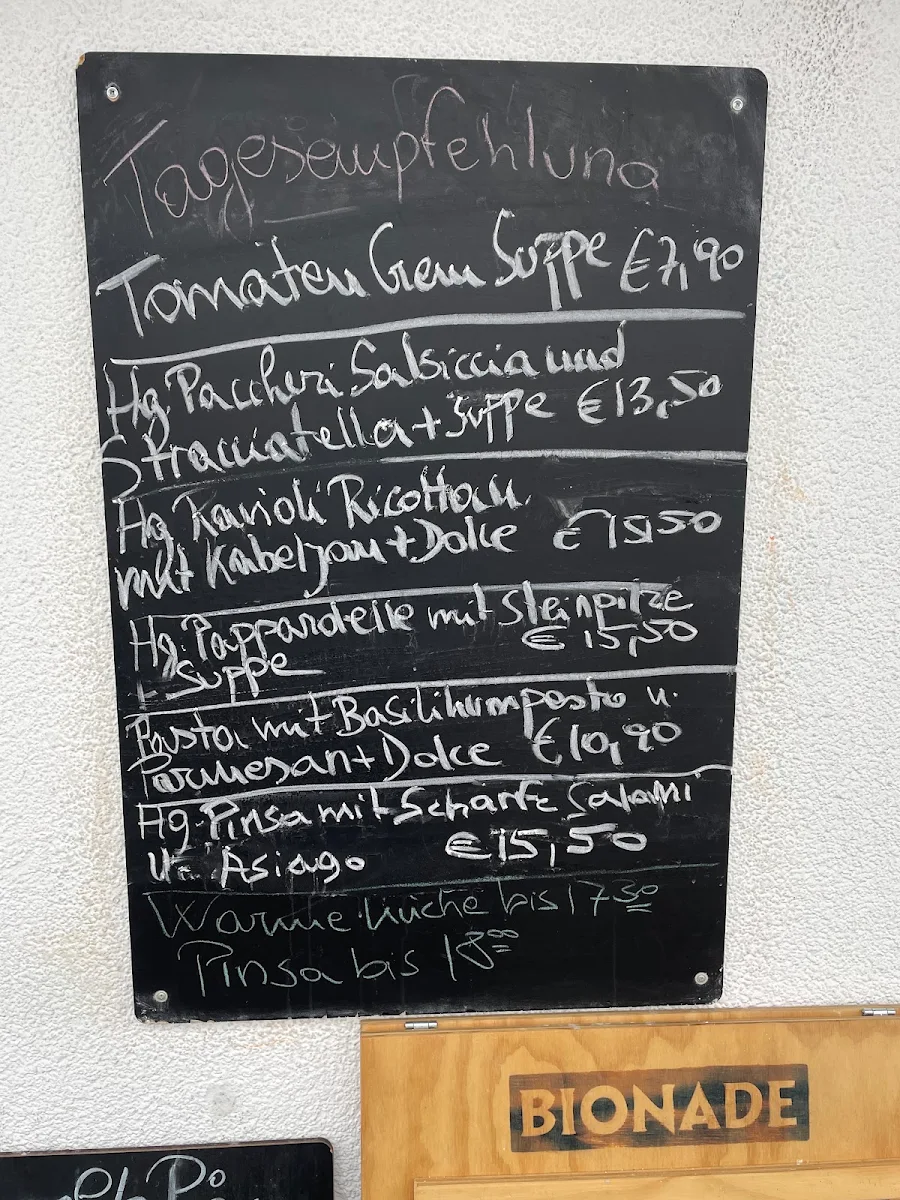 Tagesempfehlung
Tomaten Crem Suppe €7,90
Hg. Paccheri Salsiccia und
Stracciatella + Suppe €13,50
Hg Ravioli Ricotta u.
mit Kabeljau + Dolce €15,50
Hg. Pappardelle mit Steinpilze
+ Suppe €15,50
Pasta mit Basilikumpesto u.
Parmesan + Dolce €10,90
Hg. Pinsa mit Scharfe Salami
u. Asiago €15,50
Warme Küche bis 17 30
Pinsa bis 18 00
BIONADE